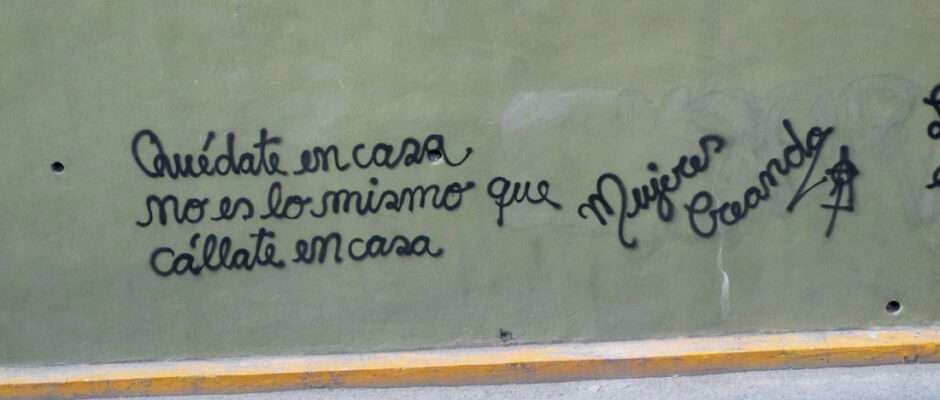 Quédate en casa
no es lo mismo que
cállate en casa
Mujeres
Creando